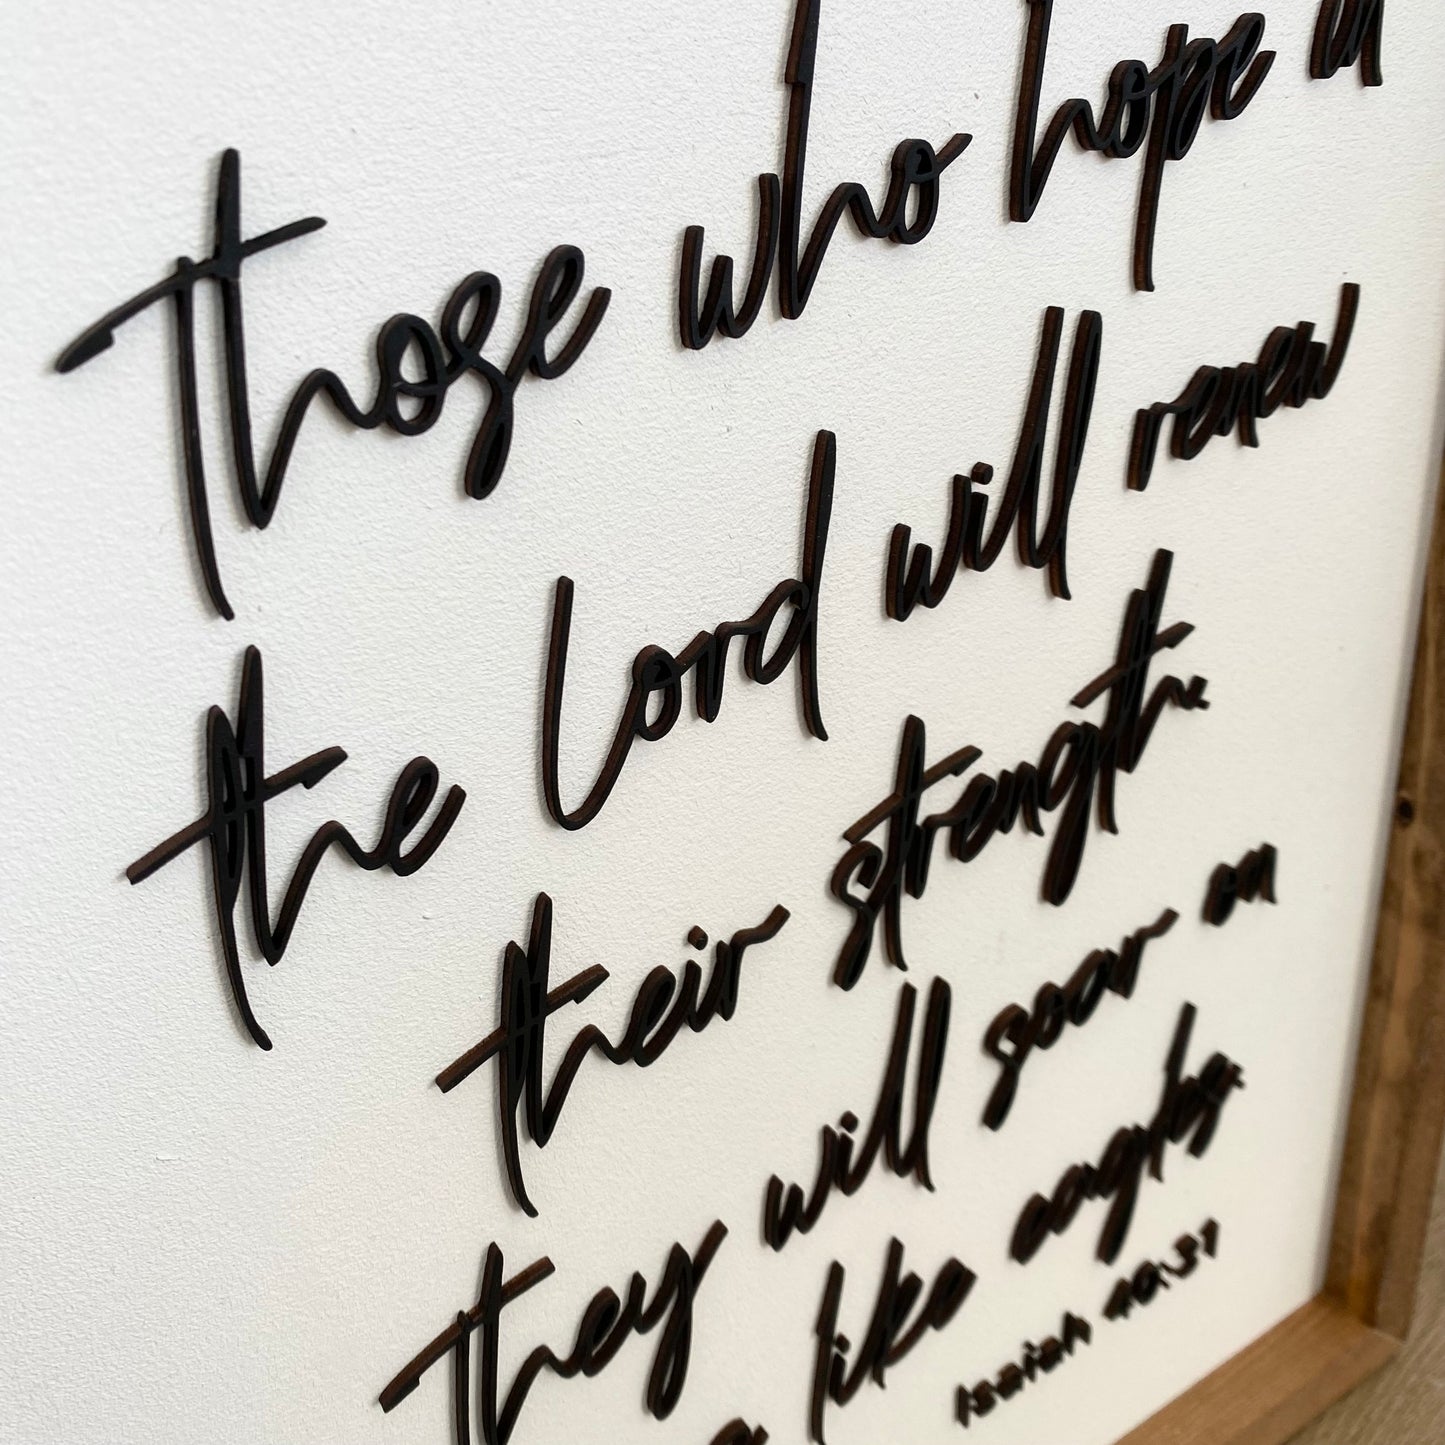 those who hope in
the Lord will renew
their strength.
they will soar on
like eagles.
Isaiah 40:31